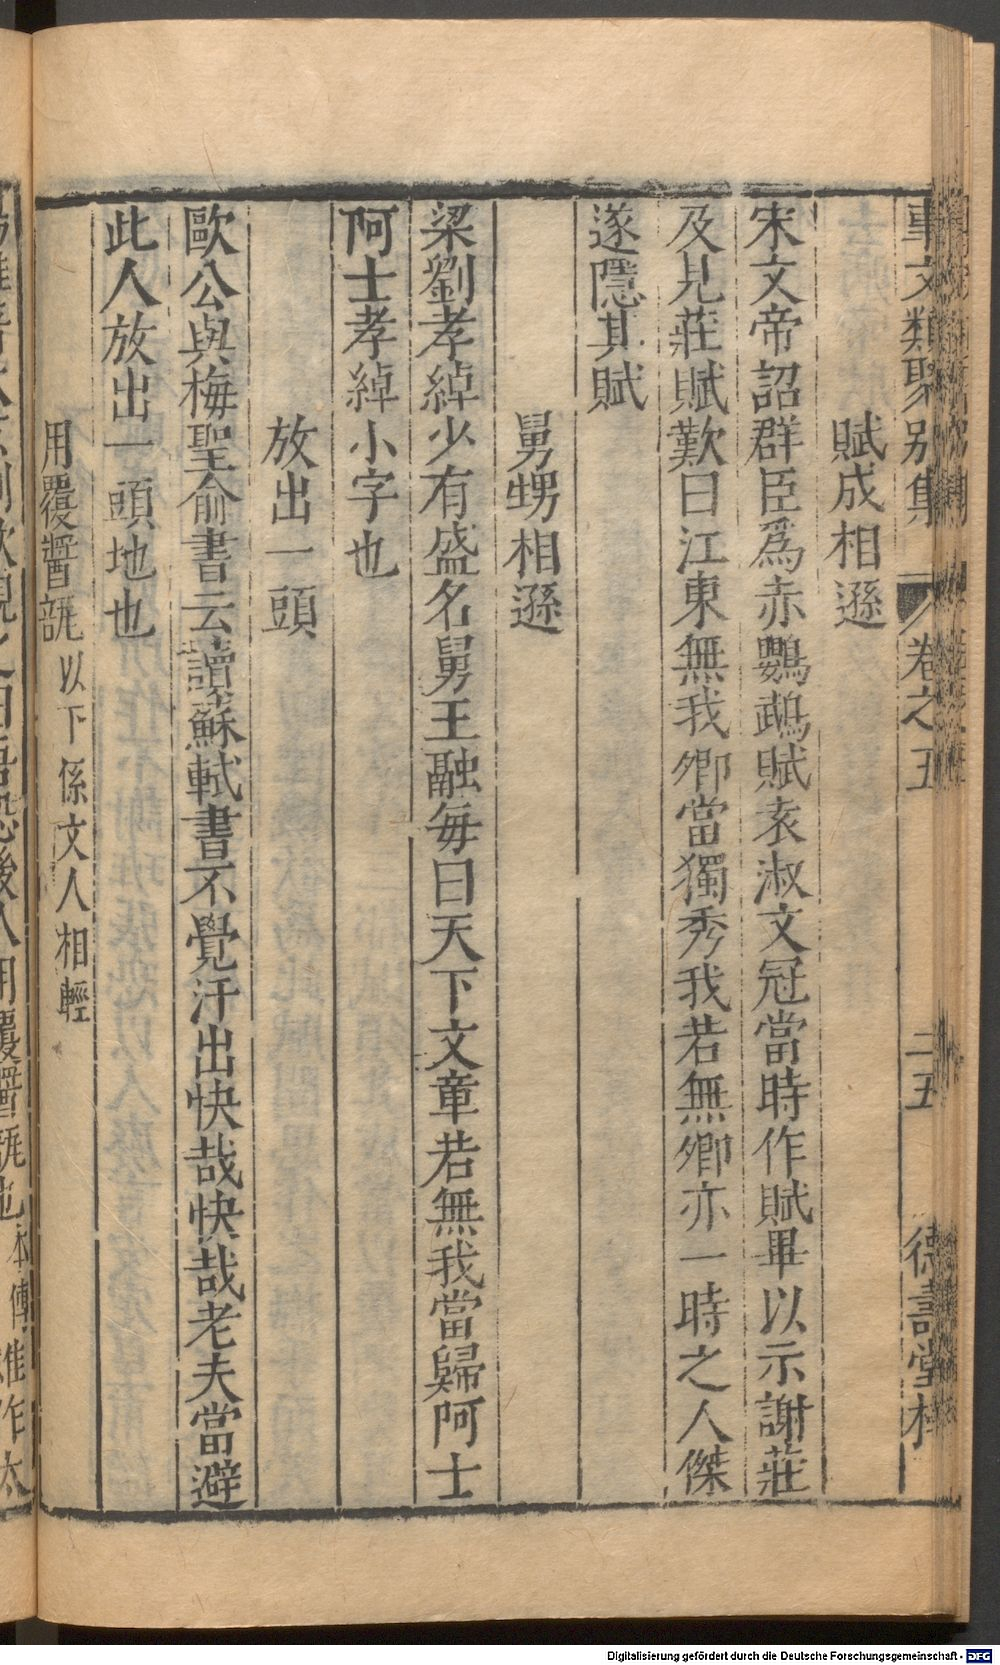 事文類聚别集 卷之五 二五 德壽堂梓
賦成相遜
宋文帝詔群臣爲赤鸚鵡賦袁淑文冠當時作賦畢以示謝莊
及見莊賦歎曰江東無我卿當獨秀我若無卿亦一時之人傑
遂隱其賦
舅甥相遜
梁劉孝綽少有盛名舅王融每曰天下文章若無我當歸阿士
阿士孝綽小字也
放出一頭
歐公與梅聖俞書云讀蘇軾書不覺汗出快哉快哉老夫當避
此人放出一頭地也
用覆醬瓿 以下係文人相輕
後人用覆醬瓿也 本傳 雄作太
Digitalisierung gefördert durch die Deutsche Forschungsgemeinschaft - DFG